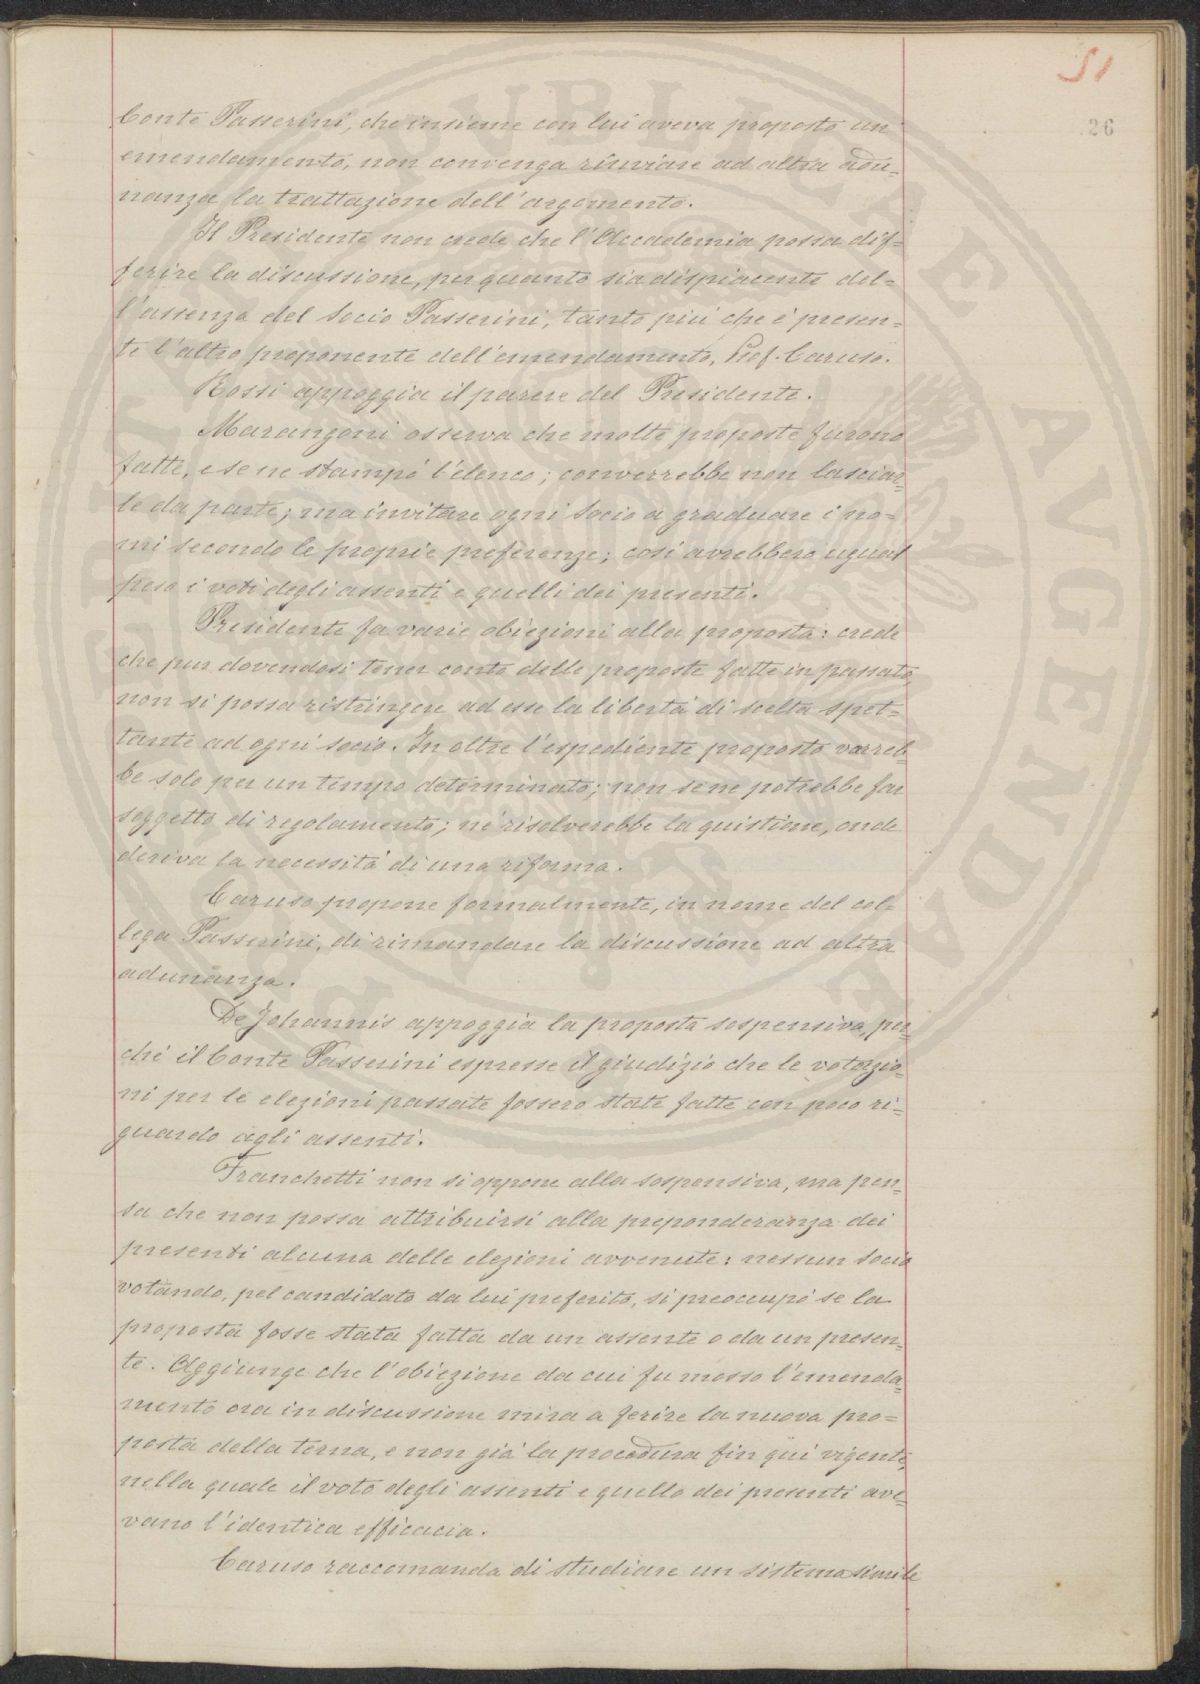 51
26
Conte Passerini, che insieme con lui aveva proposto un
emendamento, non convenga rinviare ad altra adu=
nanza la trattazione dell'argomento.
Il Presidente non crede che l'Accademia possa dif=
ferire la discussione, per quanto sia dispiacente del=
l'assenza del Socio Passerini, tanto più che è presen=
te l'altro proponente dell'emendamento, Prof. Caruso.
Rossi appoggia il parere del Presidente.
Marangoni osserva che molte proposte furono
fatte, e se ne stampò l'elenco; converrebbe non lasciar=
le da parte; ma invitare ogni Socio a graduare i no=
mi secondo le proprie preferenze; così avrebbero ugual
peso i voti degli assenti e quelli dei presenti.
Presidente fa varie obiezioni alla proposta: crede
che pur dovendosi tener conto delle proposte fatte in passato,
non si possa ristringere ad esse la libertà di scelta spet=
tante ad ogni socio. In oltre l'espediente proposto varreb=
be solo per un tempo determinato; non se ne potrebbe far
soggetto di regolamento; nè risolverebbe la quistione, onde
deriva la necessità di una riforma.
Caruso propone formalmente, in nome del col=
lega Passerini, di rimandare la discussione ad altra
adunanza.
De Johannis appoggia la proposta sospensiva, per=
chè il Conte Passerini espresse il giudizio che le votazio=
ni per le elezioni passate fossero state fatte con poco ri=
guardo agli assenti.
Franchetti non si oppone alla sospensiva, ma pen=
sa che non possa attribuirsi alla preponderanza dei
presenti alcuna delle elezioni avvenute: nessun socio
votando, pel candidato da lui preferito, si preoccupò se la
proposta fosse stata fatta da un assente o da un presen=
te. Aggiunge che l'obiezione da cui fu mosso l'emenda=
mento ora in discussione mira a ferire la nuova pro=
posta della terna, e non già la procedura fin qui vigente,
nella quale il voto degli assenti e quello dei presenti ave=
vano l'identica efficacia.
Caruso raccomanda di studiare un sistema simile